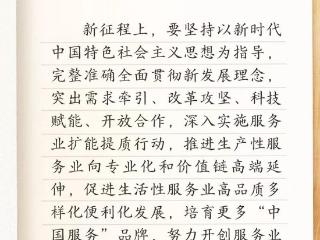 新征程上，要坚持以新时代
中国特色社会主义思想为指导，
完整准确全面贯彻新发展理念，
突出需求牵引、改革攻坚、科技
赋能、开放合作，深入实施服务
业扩能提质行动，推进生产性服
务业向专业化和价值链高端延
伸，促进生活性服务业高品质多
样化便利化发展，培育更多“中
国服务”品牌，努力开创服务业